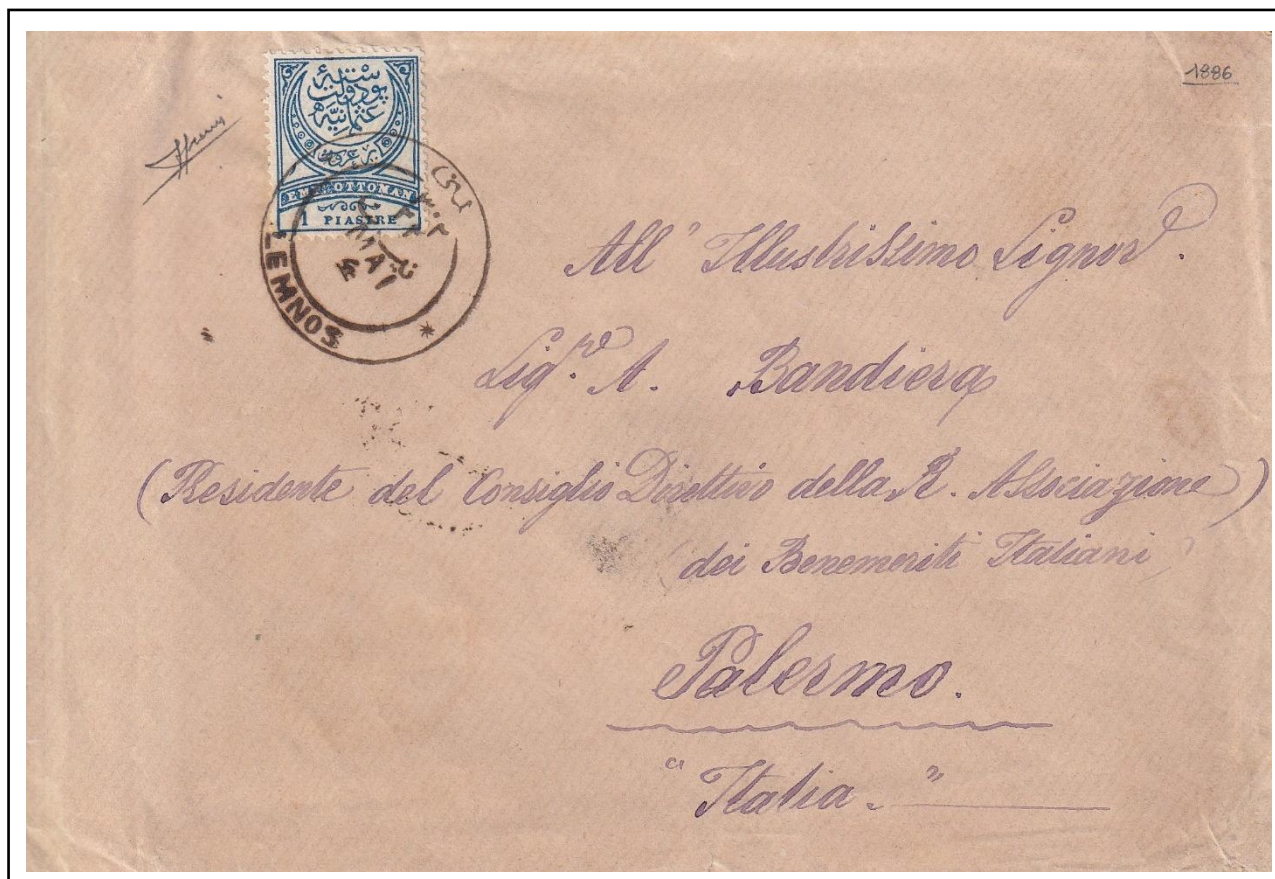 1886
سنه
بودولت
عثمانيه
بر غروش
EMP. OTTOMAN
1 PIASTRE
LEMNOS
All' Illustrissimo Signor.
Sigr. A. Bandiera
(Presidente del Consiglio Direttivo della R. Associazione)
(dei Benemeriti Italiani)
Palermo.
"Italia."